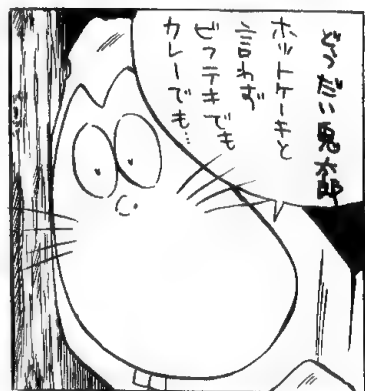 どうだい鬼太郎
ホットケーキと
言わず
ビフテキでも
カレーでも…